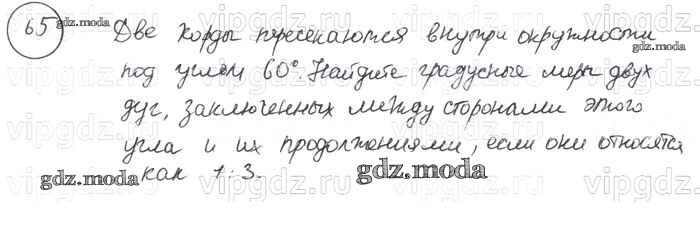 65 Две хорды пересекаются внутри окружности
под углом 60°. Найдите градусные меры двух
дуг, заключенных между сторонами этого
угла и их продолжениями, если они относятся
как 1:3.
gdz.moda
gdz.moda
gdz.moda
gdz.moda
vipgdz.ru
vipgdz.ru
vipgdz.ru
vipgdz.ru